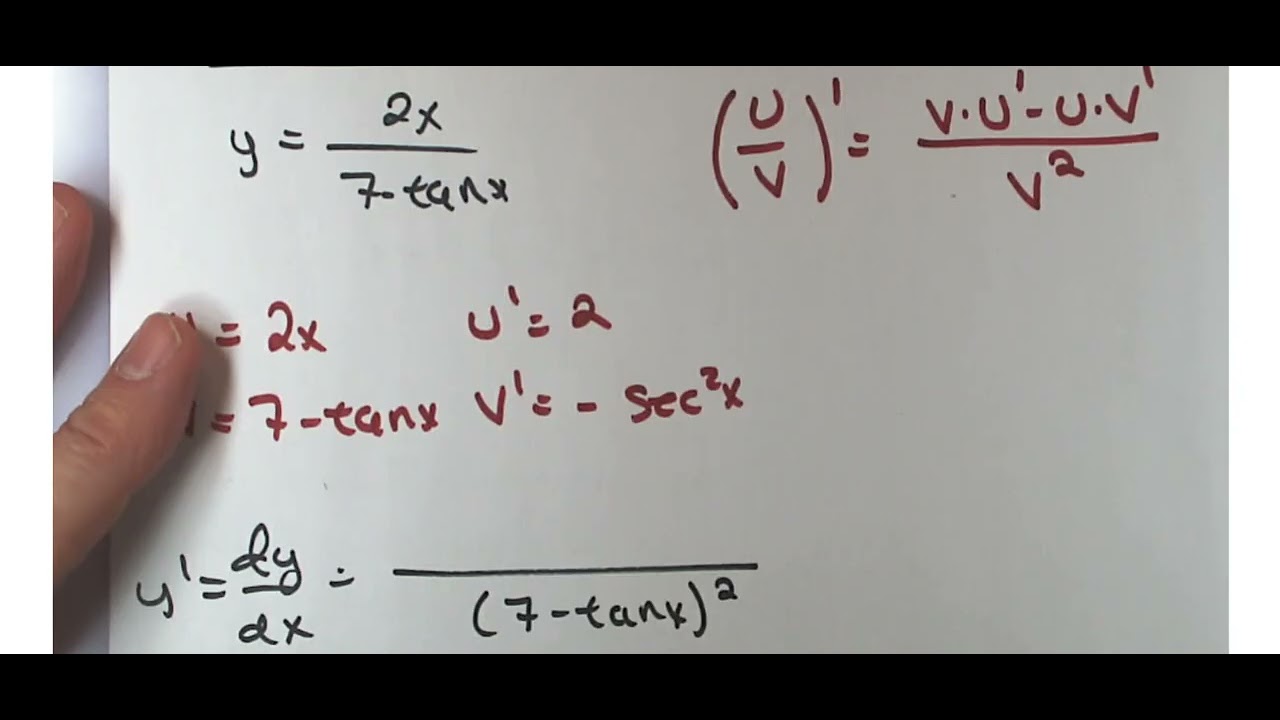 y = 2x / 7-tanx
(U/V)' = V·U' - U·V' / V²
= 2x U' = 2
= 7-tanx V' = - sec²x
y' = dy/dx = / (7-tanx)²